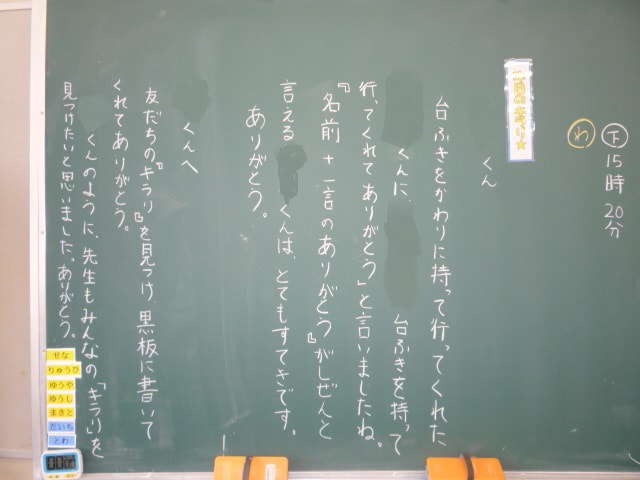 下 15時20分
わ
くん
台ふきをかわりに持って行ってくれた
くんに、台ふきを持って
行ってくれてありがとう」と言いましたね。
『名前+一言のありがとう』がしぜんと
言えるくんは、とてもすてきです。
ありがとう。
くんへ
友だちの『キラリ』を見つけ、黒板に書いて
くれてありがとう。
くんのように、先生もみんなの「キラリ」を
見つけたいと思いました。ありがとう。
せな
りゅうひ
ゆうや
ゆうし
まさと
だいち
とわ